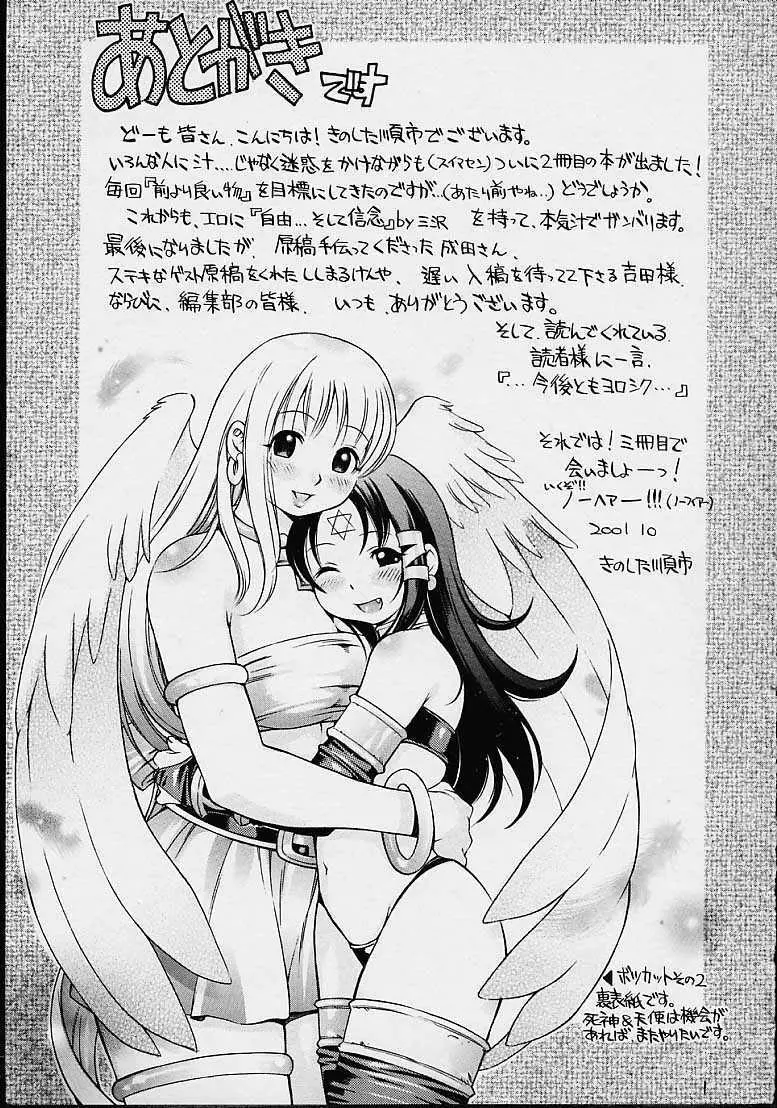 あとがきです
どーも皆さん、こんにちは!きのした順市でございます。
いろんな人に汁‥‥じゃなく迷惑をかけながらも(スイマセン)ついに2冊目の本が出ました!
毎回『前より良い物』を目標にしてきたのですが‥(あたり前やね‥)どうでしょうか。
これからも、エロに『自由…そして信念』by三沢 を持って、本気汁でガンバります。
最後になりましたが、原稿手伝ってくださった成田さん、
ステキなゲスト原稿をくれたししまるけんや、遅い入稿を待ってて下さる吉田様、
ならびに、編集部の皆様、いつもありがとうございます。
そして、読んでくれている
読者様に一言、
『…今後ともヨロシク…』
それでは!三冊目で
会いましょーっ!
いくぞ!!
ノーヘアー!!!(ノーフィアー)
2001 10
きのした順市
◀ボツカットその2
裏表紙です。
死神&天使は機会が
あれば、またやりたいです。